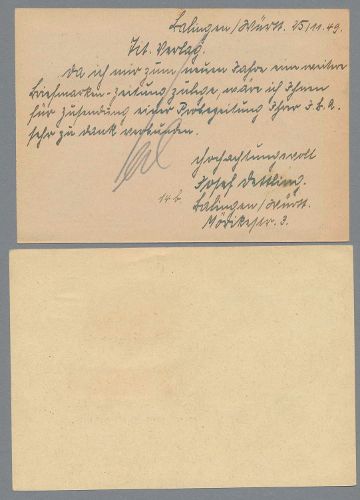 Balingen/Württ. 25/11.49.
Tit. Verlag.
Da ich mir zum neuen Jahre eine weitere
Briefmarken-Zeitung zulege, wäre ich Ihnen
für Zusendung einer Probezeitung Ihrer I.B.A.
sehr zu dank verbunden.
Hochachtungsvoll
Josef Dettling.
14b
Balingen/Württ.
Mörikestr. 3.